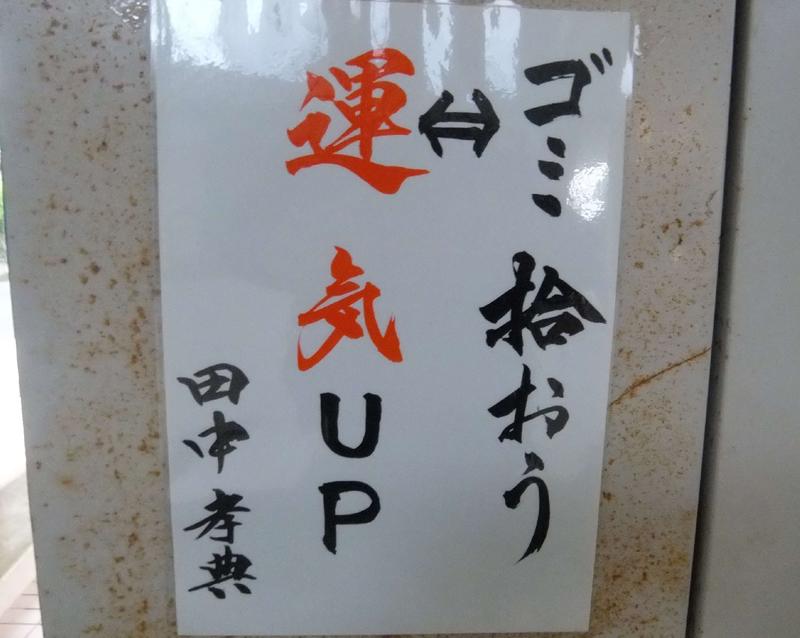 ゴミ拾おう
⇔
運気UP
田中孝典